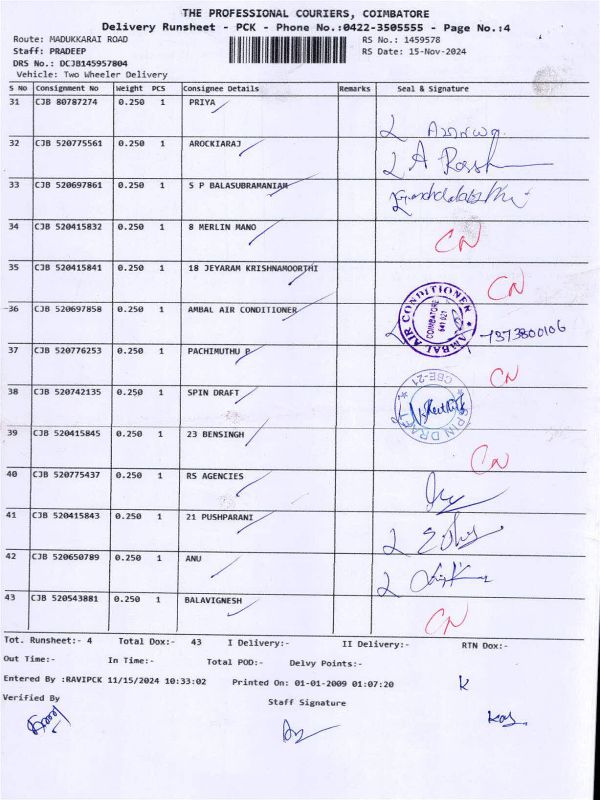 THE PROFESSIONAL COURIERS, COIMBATORE
Delivery Runsheet - PCK - Phone No.:0422-3505555 - Page No.:4
Route: MADUKKARAI ROAD RS No.: 1459578
Staff: PRADEEP RS Date: 15-Nov-2024
DRS No.: DCJB145957804
Vehicle: Two Wheeler Delivery
S No Consignment No Weight PCS Consignee Details Remarks Seal & Signature
31 CJB 80787274 0.250 1 PRIYA
32 CJB 520775561 0.250 1 AROCKIARAJ
33 CJB 520697861 0.250 1 S P BALASUBRAMANIAM
34 CJB 520415832 0.250 1 8 MERLIN MANO CN
35 CJB 520415841 0.250 1 18 JEYARAM KRISHNAMOORTHI CN
36 CJB 520697858 0.250 1 AMBAL AIR CONDITIONER AMBAL AIR CONDITIONER COIMBATORE 641 021 7373800106
37 CJB 520776253 0.250 1 PACHIMUTHU P CN
38 CJB 520742135 0.250 1 SPIN DRAFT SPIN DRAFT CBE-21
39 CJB 520415845 0.250 1 23 BENSINGH CN
40 CJB 520775437 0.250 1 RS AGENCIES
41 CJB 520415843 0.250 1 21 PUSHPARANI
42 CJB 520650789 0.250 1 ANU
43 CJB 520543881 0.250 1 BALAVIGNESH CN
Tot. Runsheet:- 4 Total Dox:- 43 I Delivery:- II Delivery:- RTN Dox:-
Out Time:- In Time:- Total POD:- Delvy Points:-
Entered By :RAVIPCK 11/15/2024 10:33:02 Printed On: 01-01-2009 01:07:20 K
Verified By Staff Signature